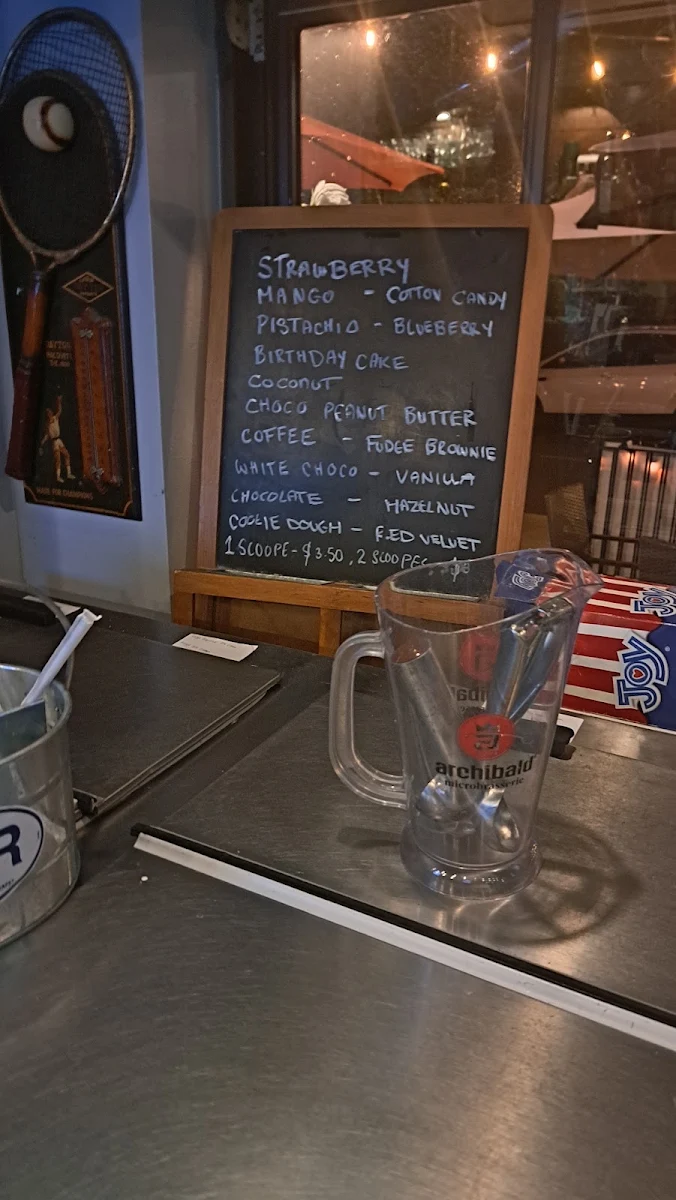 STRAWBERRY
MANGO - COTTON CANDY
PISTACHIO - BLUEBERRY
BIRTHDAY CAKE
COCONUT
CHOCO PEANUT BUTTER
COFFEE - FUDGE BROWNIE
WHITE CHOCO - VANILLA
CHOCOLATE - HAZELNUT
COOKIE DOUGH - RED VELVET
1 SCOOPE - $3.50, 2 SCOOPES
archibald
microbrasserie
JOY
JOY
R
MADE FOR CHAMPIONS